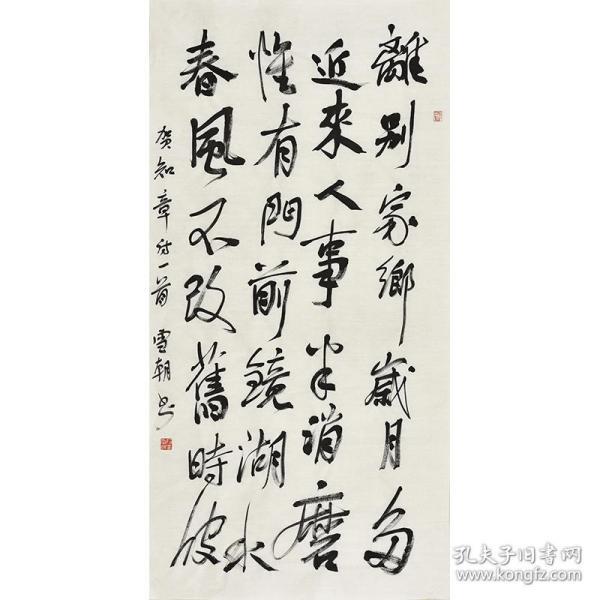 離别家鄉歲月多
近來人事半消磨
惟有門前鏡湖水
春風不改舊時波
贺知章诗一首 雪朝书
孔夫子旧书网
www.kongfz.com